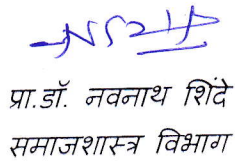 प्रा.डॉ. नवनाथ शिंदे
समाजशास्त्र विभाग